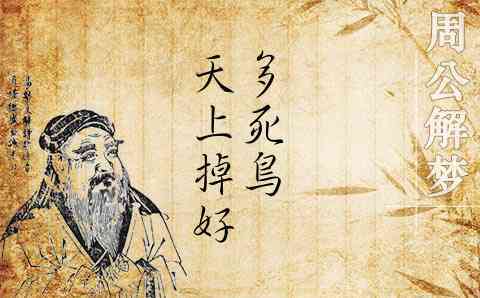 周公解梦
天上掉好
多死鳥